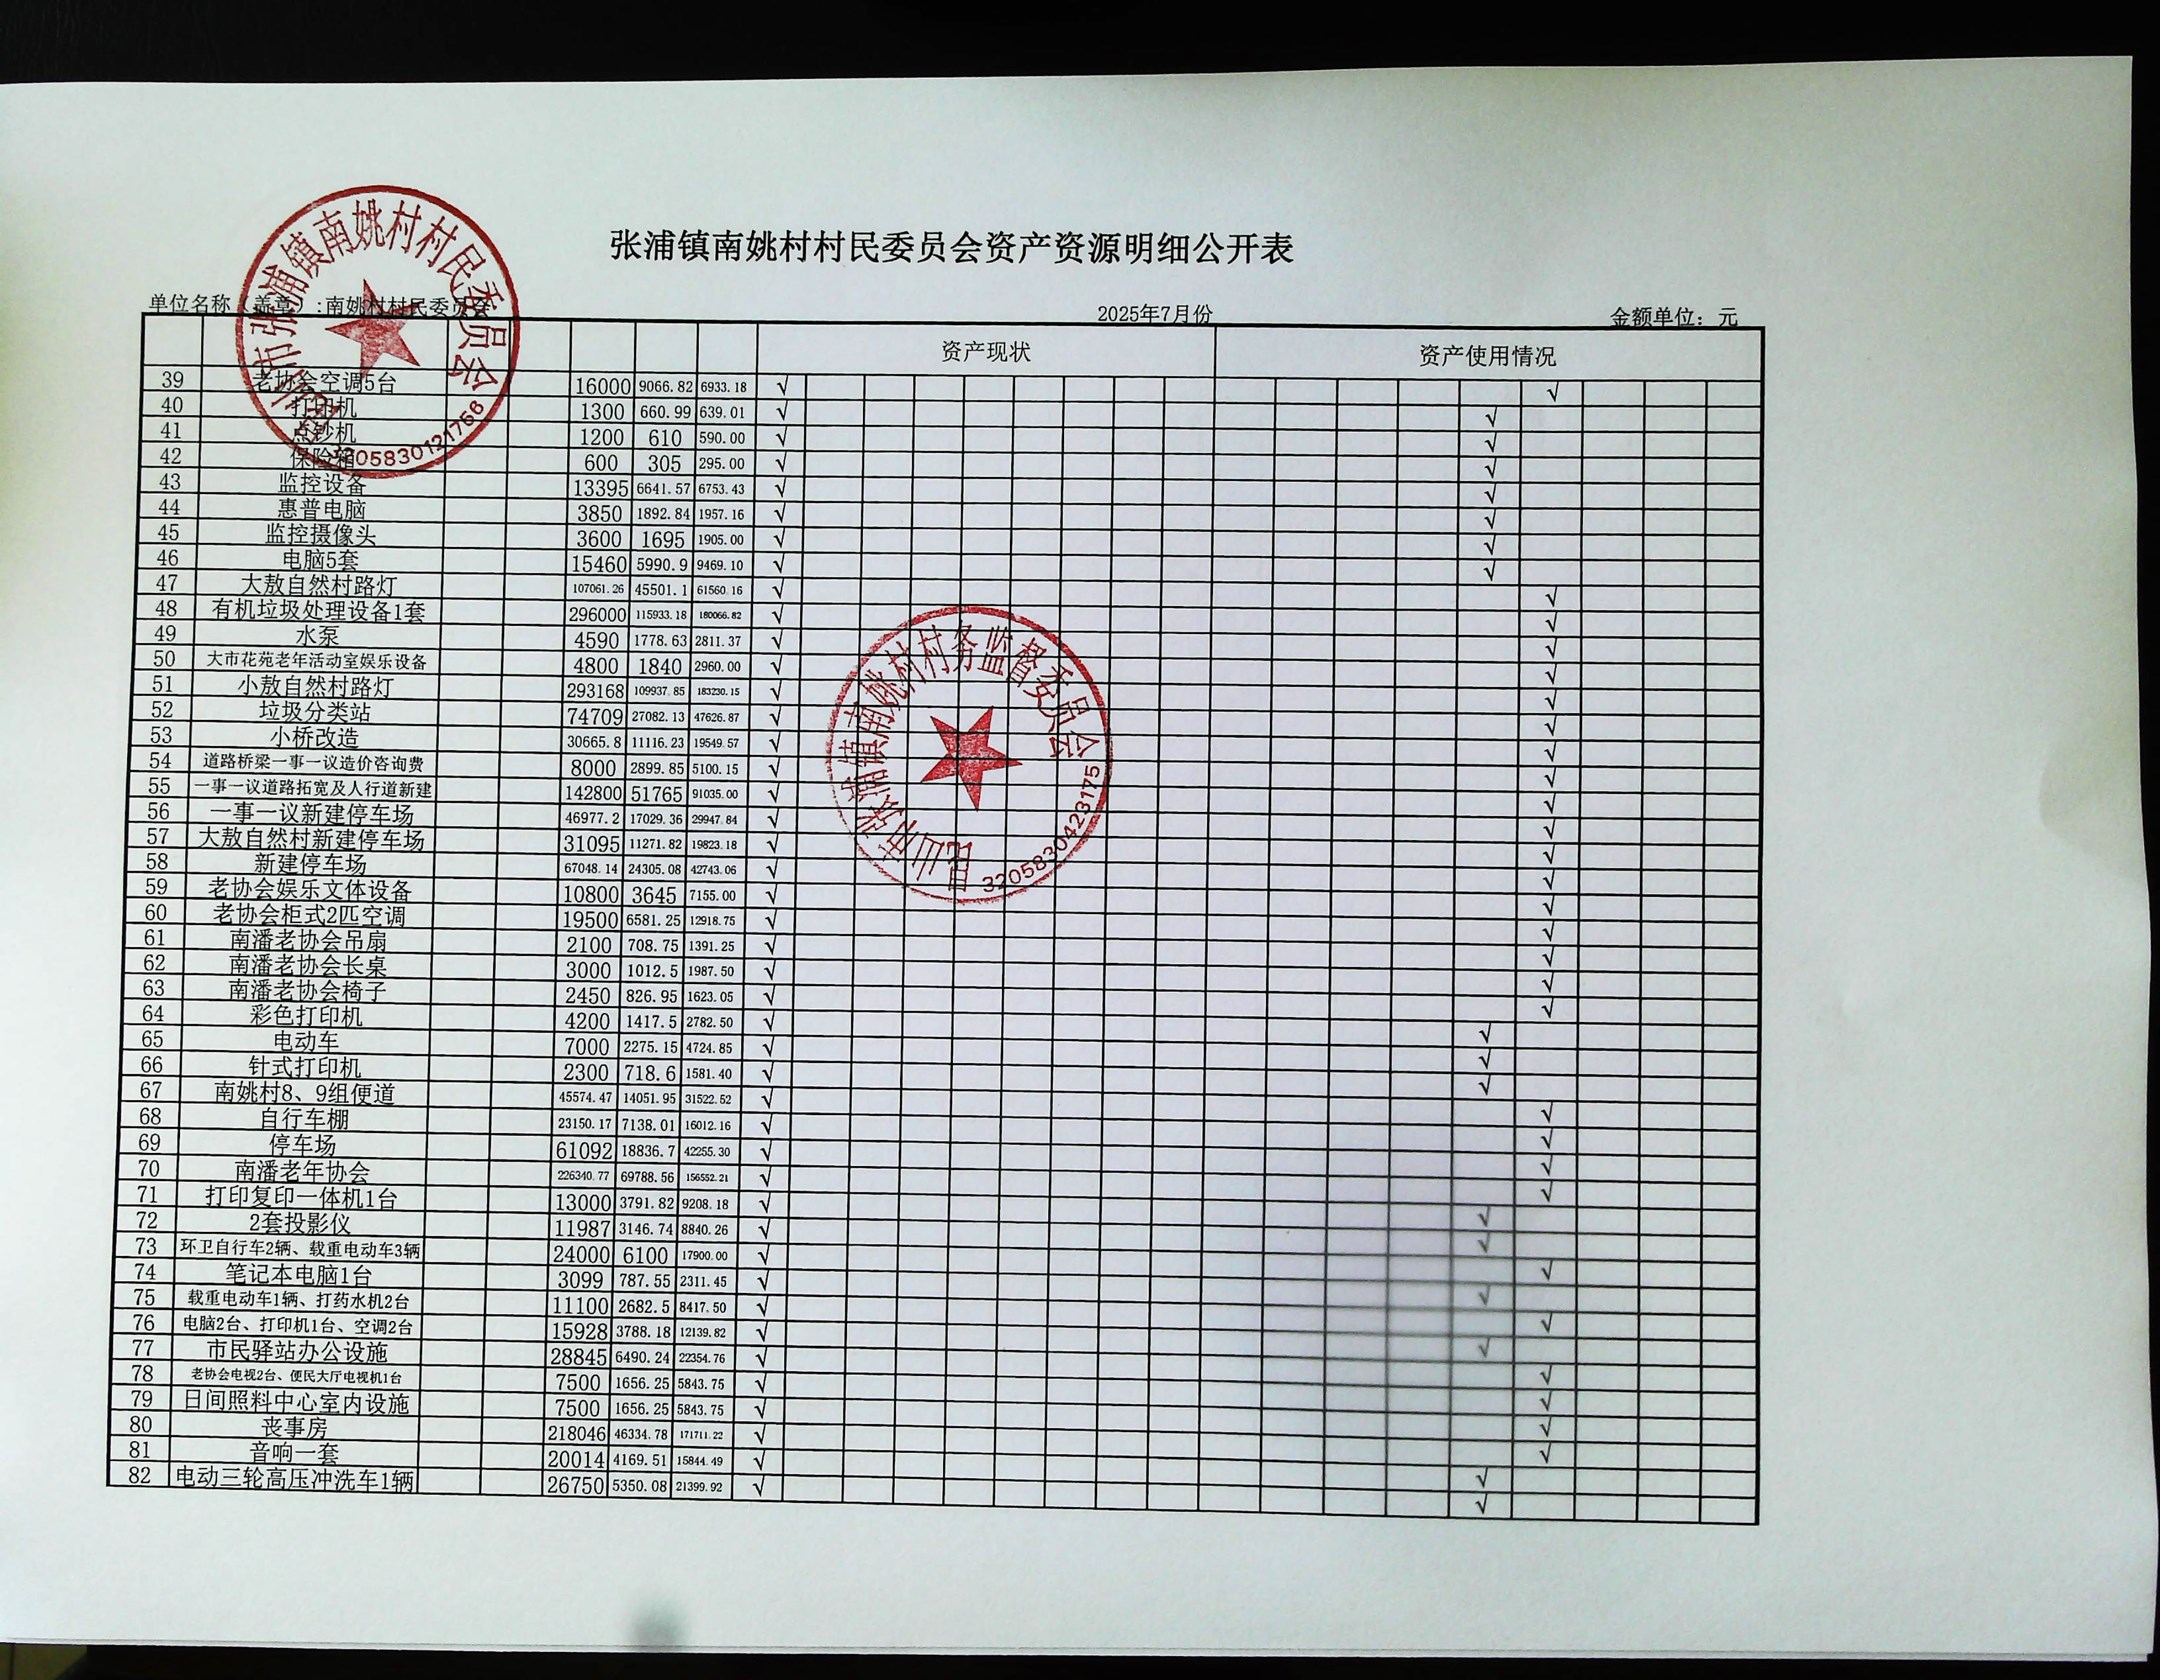 张浦镇南姚村村民委员会资产资源明细公开表
单位名称（盖章）:南姚村村民委员会 2025年7月份 金额单位: 元
资产现状 资产使用情况
39 老协会空调5台 16000 9066.82 6933.18 √ √
40 打印机 1300 660.99 639.01 √ √
41 点钞机 1200 610 590.00 √ √
42 保险箱 600 305 295.00 √ √
43 监控设备 13395 6641.57 6753.43 √ √
44 惠普电脑 3850 1892.84 1957.16 √ √
45 监控摄像头 3600 1695 1905.00 √ √
46 电脑5套 15460 5990.9 9469.10 √ √
47 大敖自然村路灯 107061.26 45501.1 61560.16 √ √
48 有机垃圾处理设备1套 296000 115933.18 180066.82 √ √
49 水泵 4590 1778.63 2811.37 √ √
50 大市花苑老年活动室娱乐设备 4800 1840 2960.00 √ √
51 小敖自然村路灯 293168 109937.85 183230.15 √ √
52 垃圾分类站 74709 27082.13 47626.87 √ √
53 小桥改造 30665.8 11116.23 19549.57 √ √
54 道路桥梁一事一议造价咨询费 8000 2899.85 5100.15 √ √
55 一事一议道路拓宽及人行道新建 142800 51765 91035.00 √ √
56 一事一议新建停车场 46977.2 17029.36 29947.84 √ √
57 大敖自然村新建停车场 31095 11271.82 19823.18 √ √
58 新建停车场 67048.14 24305.08 42743.06 √ √
59 老协会娱乐文体设备 10800 3645 7155.00 √ √
60 老协会柜式2匹空调 19500 6581.25 12918.75 √ √
61 南潘老协会吊扇 2100 708.75 1391.25 √ √
62 南潘老协会长桌 3000 1012.5 1987.50 √ √
63 南潘老协会椅子 2450 826.95 1623.05 √ √
64 彩色打印机 4200 1417.5 2782.50 √ √
65 电动车 7000 2275.15 4724.85 √ √
66 针式打印机 2300 718.6 1581.40 √ √
67 南姚村8、9组便道 45574.47 14051.95 31522.52 √ √
68 自行车棚 23150.17 7138.01 16012.16 √ √
69 停车场 61092 18836.7 42255.30 √ √
70 南潘老年协会 226340.77 69788.56 156552.21 √ √
71 打印复印一体机1台 13000 3791.82 9208.18 √ √
72 2套投影仪 11987 3146.74 8840.26 √ √
73 环卫自行车2辆、载重电动车3辆 24000 6100 17900.00 √ √
74 笔记本电脑1台 3099 787.55 2311.45 √ √
75 载重电动车1辆、打药水机2台 11100 2682.5 8417.50 √ √
76 电脑2台、打印机1台、空调2台 15928 3788.18 12139.82 √ √
77 市民驿站办公设施 28845 6490.24 22354.76 √ √
78 老协会电视2台、便民大厅电视机1台 7500 1656.25 5843.75 √ √
79 日间照料中心室内设施 7500 1656.25 5843.75 √ √
80 丧事房 218046 46334.78 171711.22 √ √
81 音响一套 20014 4169.51 15844.49 √ √
82 电动三轮高压冲洗车1辆 26750 5350.08 21399.92 √ √
昆山市张浦镇南姚村村民委员会
3205830121758
昆山市张浦镇南姚村村务监督委员会
3205830423175